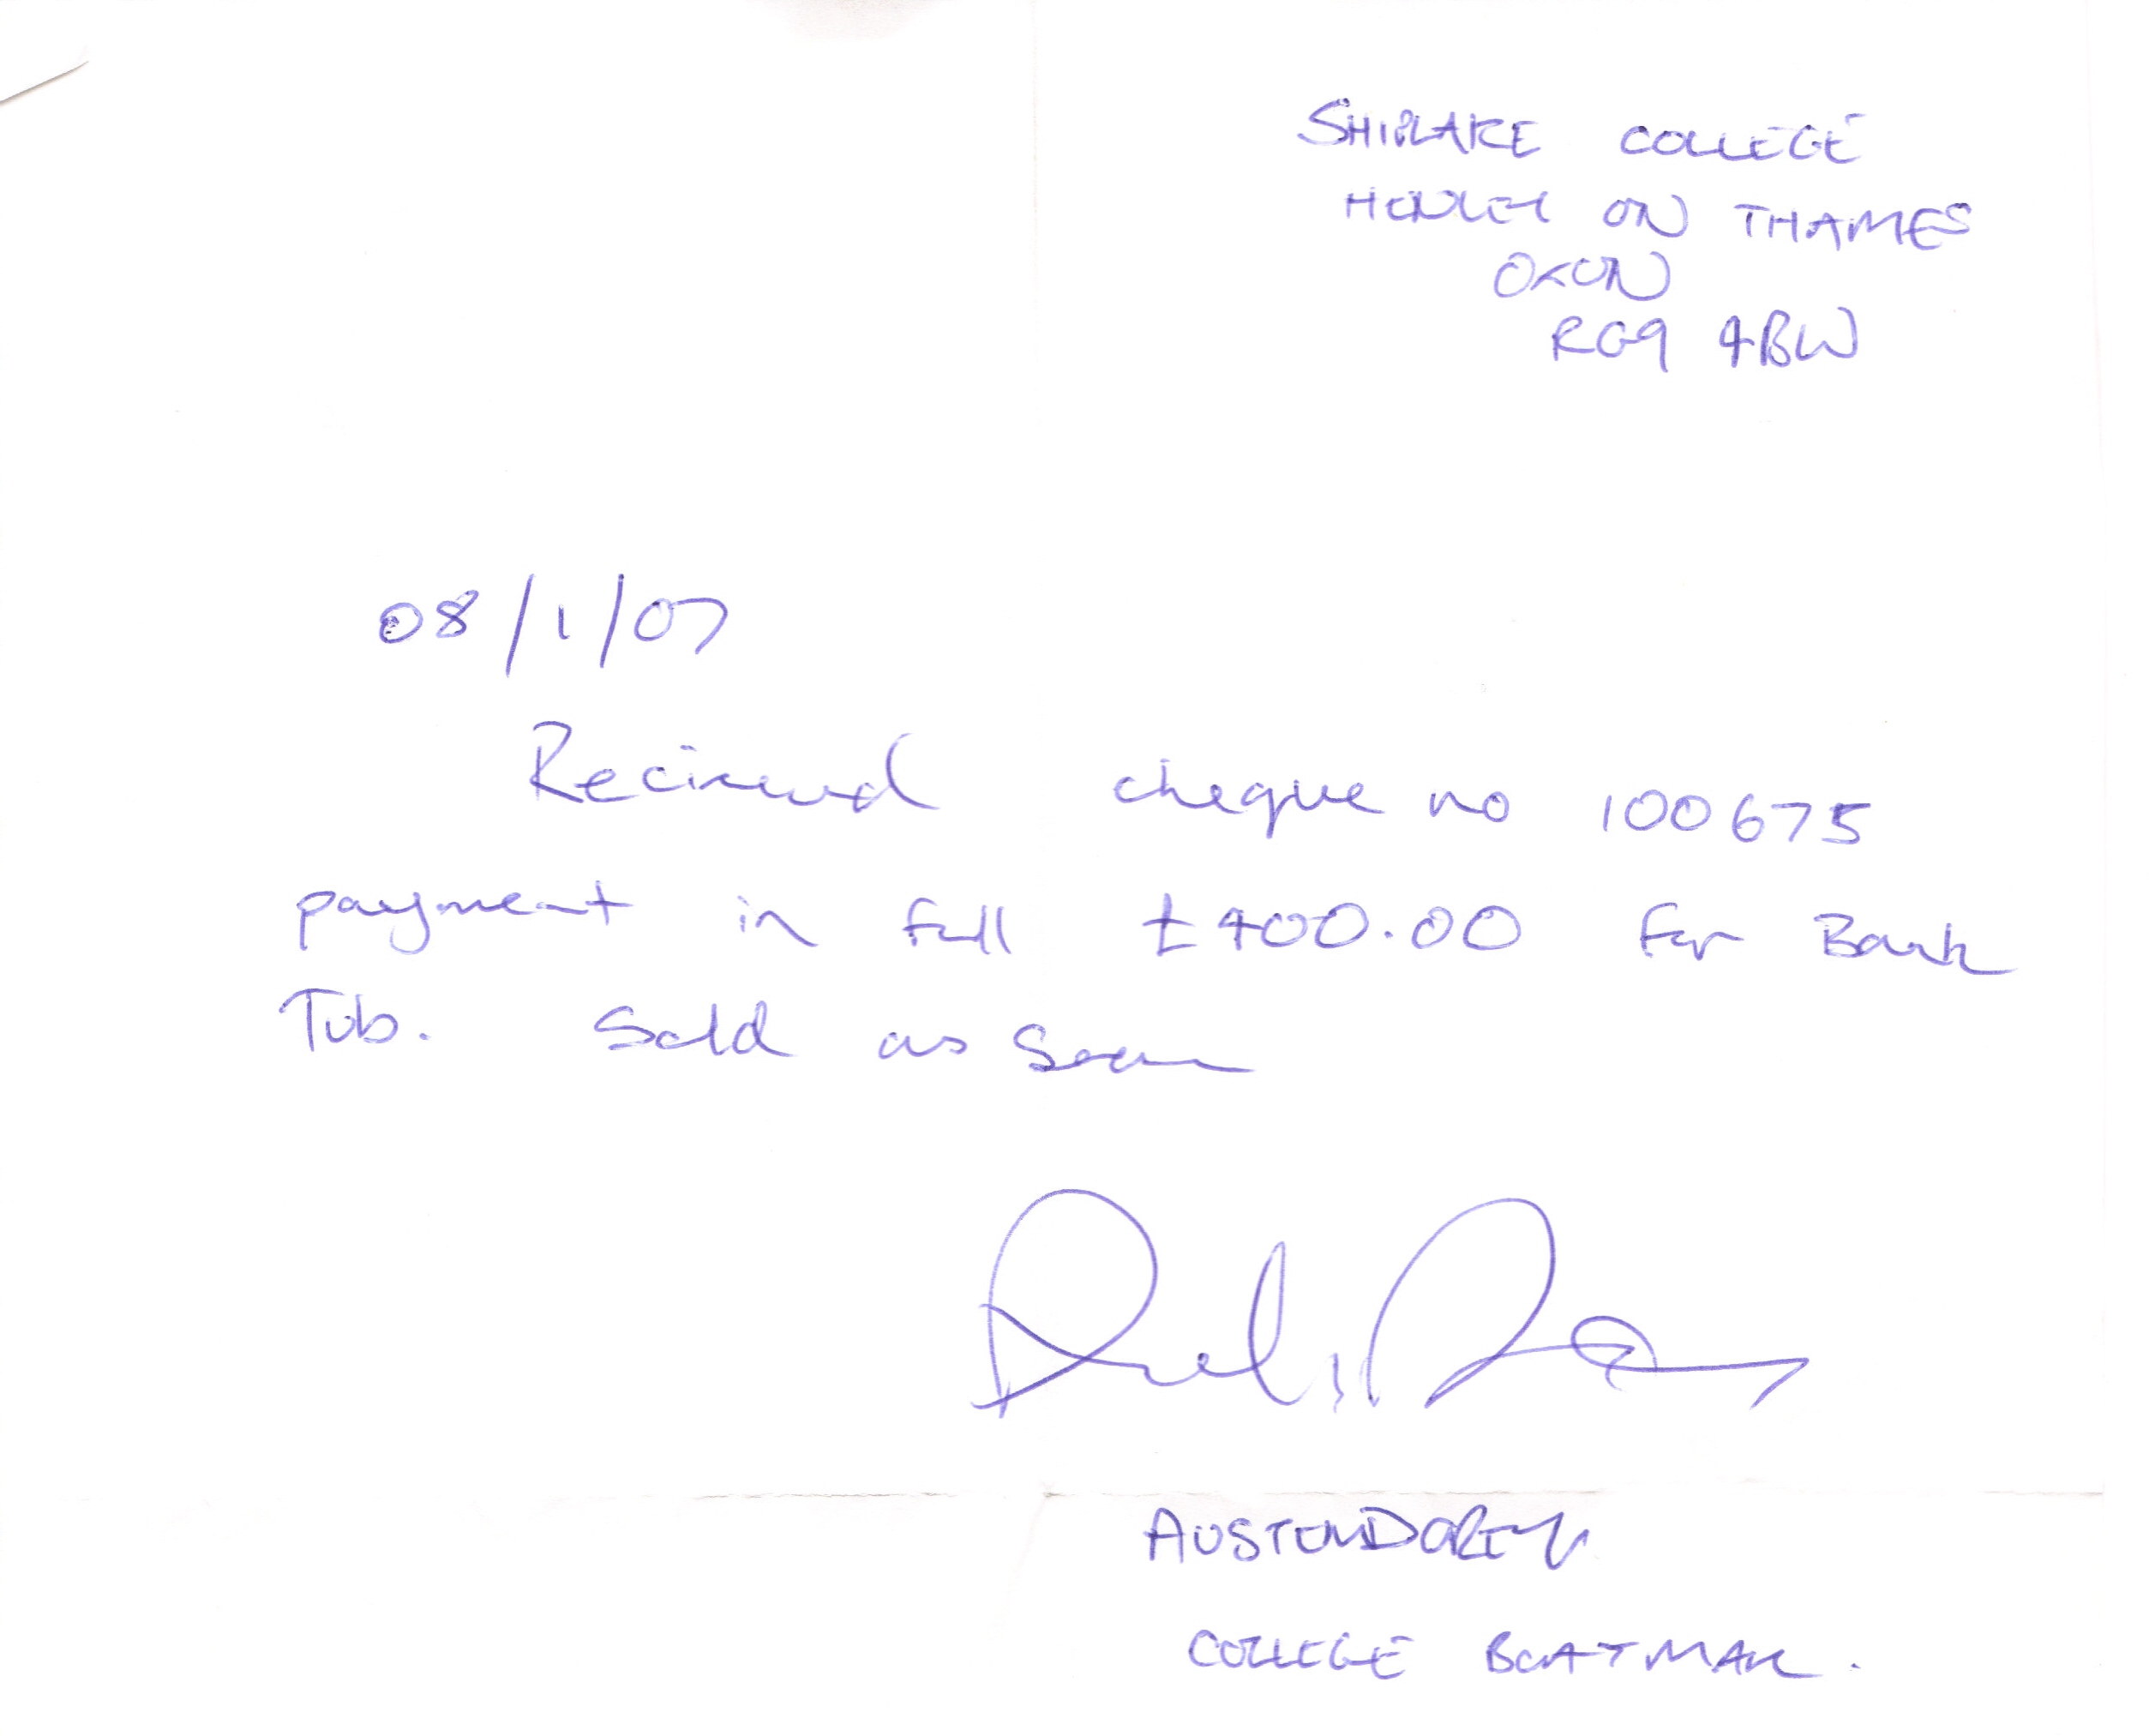 SHIPLAKE COLLEGE
HENLEY ON THAMES
OXON
RG9 4BW
08/1/07
Recieved cheque no 100675
payment in full £400.00 for Bank
Tub. Sold as Seen
COLLEGE BOATMAN.